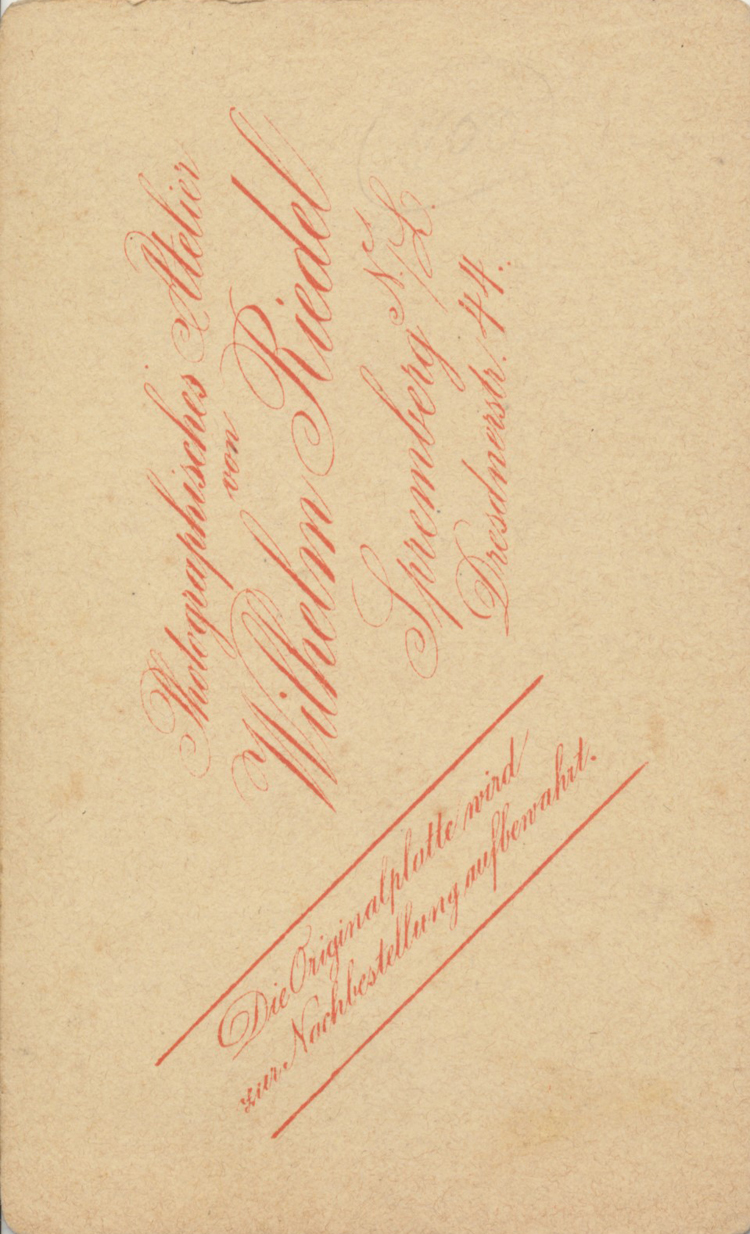 Photographisches Atelier
von
Wilhelm Riedel
Spremberg N./L.
Dresdnerstr. 44.
Die Originalplatte wird
zur Nachbestellung aufbewahrt.